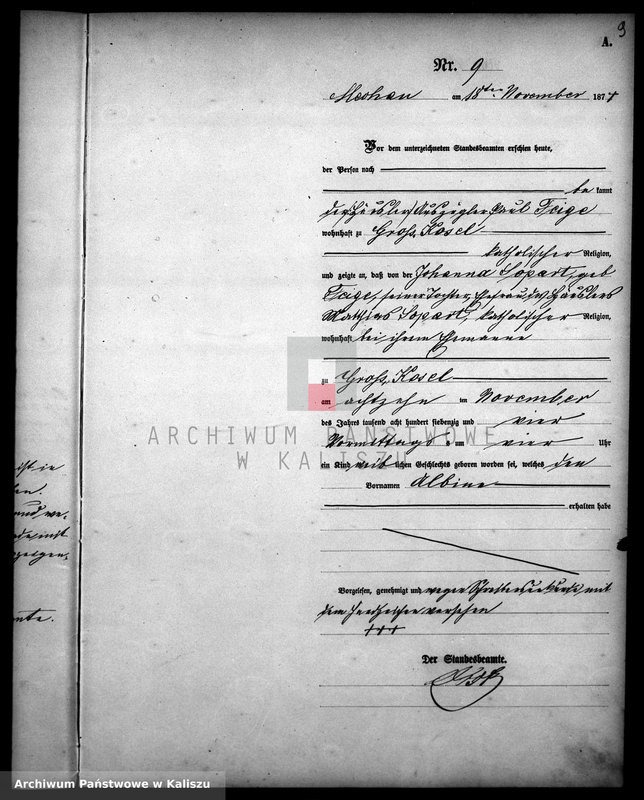 9
A.
Nr. 9
am 18ten November 1874
Vor dem unterzeichneten Standesbeamten erschien heute,
der Person nach
be kannt
der Häusler Auszügler Paul Feige
wohnhaft zu Gross Kosel
katholischer Religion,
und zeigte an, daß von der Johanna Sopart, geb
Feige, seiner Tochter, Ehefrau des Häuslers
Mathias Sopart, katholischer Religion,
wohnhaft bei ihrem Ehemanne
zu Gross Kosel
am achtzehn ten November
des Jahres tausend acht hundert siebenzig und vier
Vormittags um vier Uhr
ein Kind weib lichen Geschlechts geboren worden sei, welches den
Vornamen Albine
erhalten habe
Vorgelesen, genehmigt und wegen Schreibensunkunde mit
dem Handzeichen versehen
+++
Der Standesbeamte.
ARCHIWUM PAŃSTWOWE
W KALISZU
Archiwum Państwowe w Kaliszu